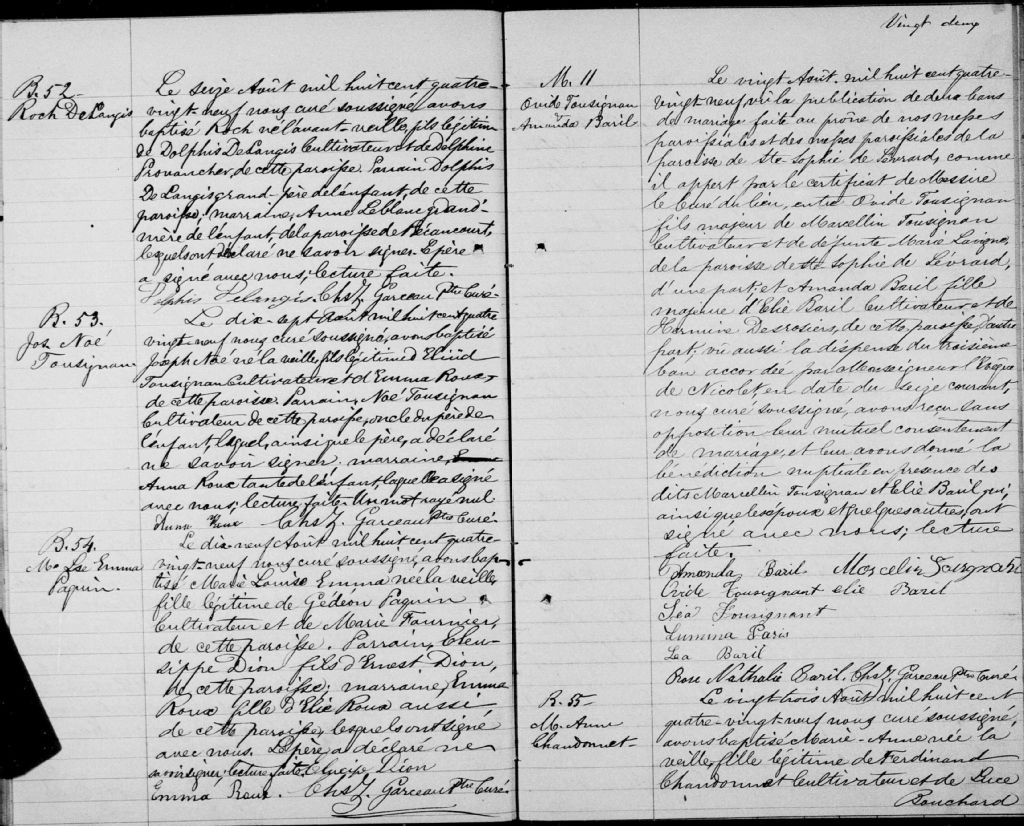 B. 52
Roch DeLangis
Le seize Août mil huit cent quatre-
vingt-neuf nous curé soussigné, avons
baptisé Roch né l'avant-veille, fils légitime
de Dolphis DeLangis Cultivateur et de Delphine
Provancher, de cette paroisse. Parrain Dolphis
De Langis grand-père de l'enfant, de cette
paroisse; marraine, Anne Leblanc, grand'-
mère de l'enfant, de la paroisse de Bécancourt,
lesquels ont déclaré ne savoir signer. Le père
a signé avec nous; lecture faite.
Dolphis Delangis. Chs Z. Garceau Ptre Curé.
B. 53.
Jos Noé
Tousignan
Le dix-sept Août mil huit cent quatre
vingt-neuf nous curé soussigné, avons baptisé
Joseph Noé né la veille, fils légitime d'
Tousignan Cultivateur et d'Emma Roux,
de cette paroisse. Parrain, Noé Tousignan
Cultivateur de cette paroisse, oncle du père de
l'enfant, lequel, ainsi que le père, a déclaré
ne savoir signer. marraine,
Anna Roux tante de l'enfant, laquelle a signé
avec nous; lecture faite. Un mot rayé nul
Anna Roux Chs Z. Garceau Ptre Curé.
B. 54.
Me Lse Emma
Paquin.
Le dix-neuf Août mil huit cent quatre-
vingt-neuf nous curé soussigné, avons bap-
tisé Marie Louise Emma née la veille,
fille légitime de Gédéon Paquin
Cultivateur et de Marie Fournier,
de cette paroisse. Parrain, Eleu-
sippe Dion fils d'Ernest Dion,
de cette paroisse; marraine, Emma
Roux fille d'Elie Roux aussi
de cette paroisse, lesquels ont signé
avec nous. Le père a déclaré ne
savoir signer; lecture faite. Dion
Emma Roux. Chs Z. Garceau Ptre Curé.
Vingt deux
M. 11
Ovide Tousignan
Amanda Baril
Le vingt Août mil huit cent quatre-
vingt-neuf, vu la publication de deux bans
de mariage faite au prône de nos messes
paroissiales et des messes paroissiales de la
paroisse de Ste Sophie de Lévrard, comme
il appert par le certificat de Messire
le Curé du lieu, entre Ovide Tousignan
fils majeur de Marcellin Tousignan
Cultivateur et de défunte Marie Lavigne,
de la paroisse de Ste Sophie de Lévrard,
d'une part, et Amanda Baril fille
majeure d'Elie Baril Cultivateur et de
Hermine Desrosiers, de cette paroisse, d'autre
part, vu aussi la dispense du troisième
ban accordée par Monseigneur l'Evêque
de Nicolet, en date du seize courant,
nous curé soussigné, avons reçu sans
opposition leur mutuel consentement
de mariage, et leur avons donné la
bénédiction nuptiale en présence des
dits Marcellin Tousignan et Elie Baril qui,
ainsi que les époux et quelques autres, ont
signé avec nous; lecture
faite.
Amanda Baril Marcelin
Ovide Tousignant elie Baril
Léa Tousignant
Lumina Paris
Lea Baril
Rose Nathalie Baril. Chs Z. Garceau Ptre Curé.
B. 55
M. Anne
Chandonnet
Le vingt trois Août mil huit cent
quatre-vingt-neuf nous curé soussigné,
avons baptisé Marie-Anne née la
veille, fille légitime de Ferdinand
Chandonnet Cultivateur et de Luce
Bouchard